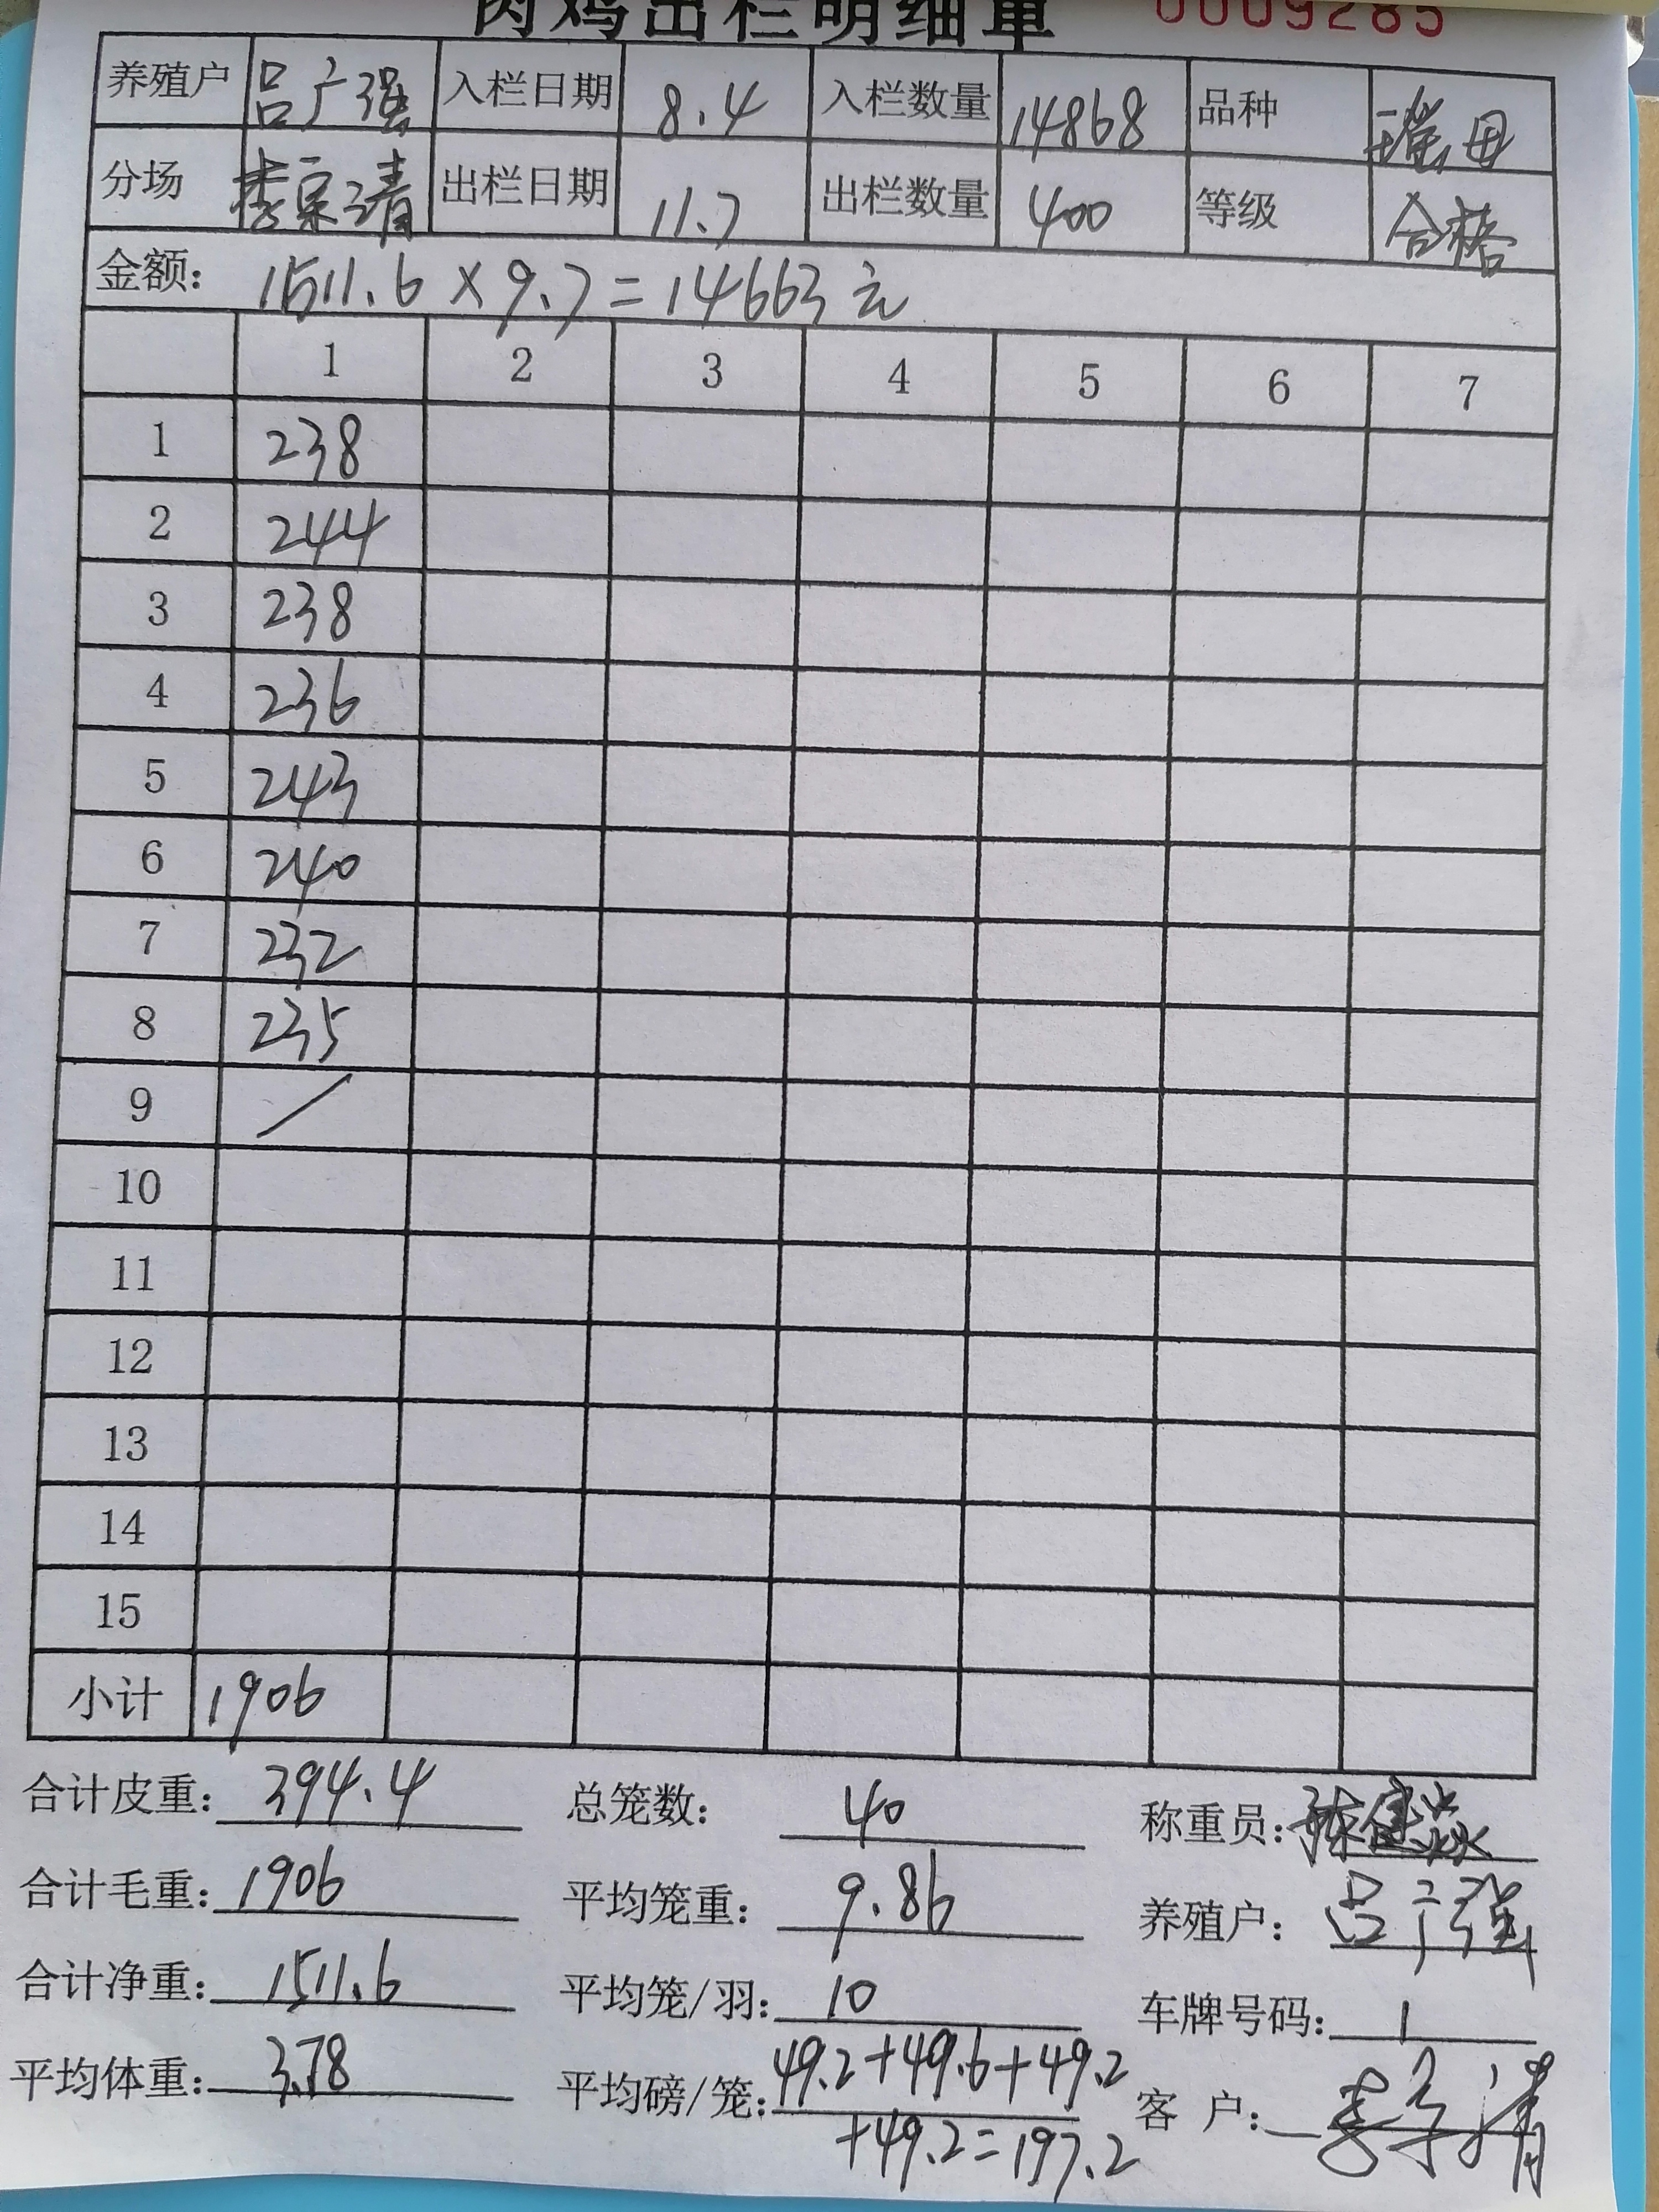 肉鸡出栏明细单 0009285
养殖户 吕广强 入栏日期 8.4 入栏数量 14868 品种 瑞母
分场 李宗清 出栏日期 11.7 出栏数量 400 等级 合格
金额: 1511.6×9.7=14663元
1 2 3 4 5 6 7
1 238
2 244
3 238
4 236
5 243
6 240
7 232
8 235
9 /
10
11
12
13
14
15
小计 1906
合计皮重: 394.4 总笼数: 40 称重员:
合计毛重: 1906 平均笼重: 9.86 养殖户: 吕广强
合计净重: 1511.6 平均笼/羽: 10 车牌号码: 1
平均体重: 3.78 平均磅/笼: 49.2+49.6+49.2 客 户: 李宗清
+49.2=197.2